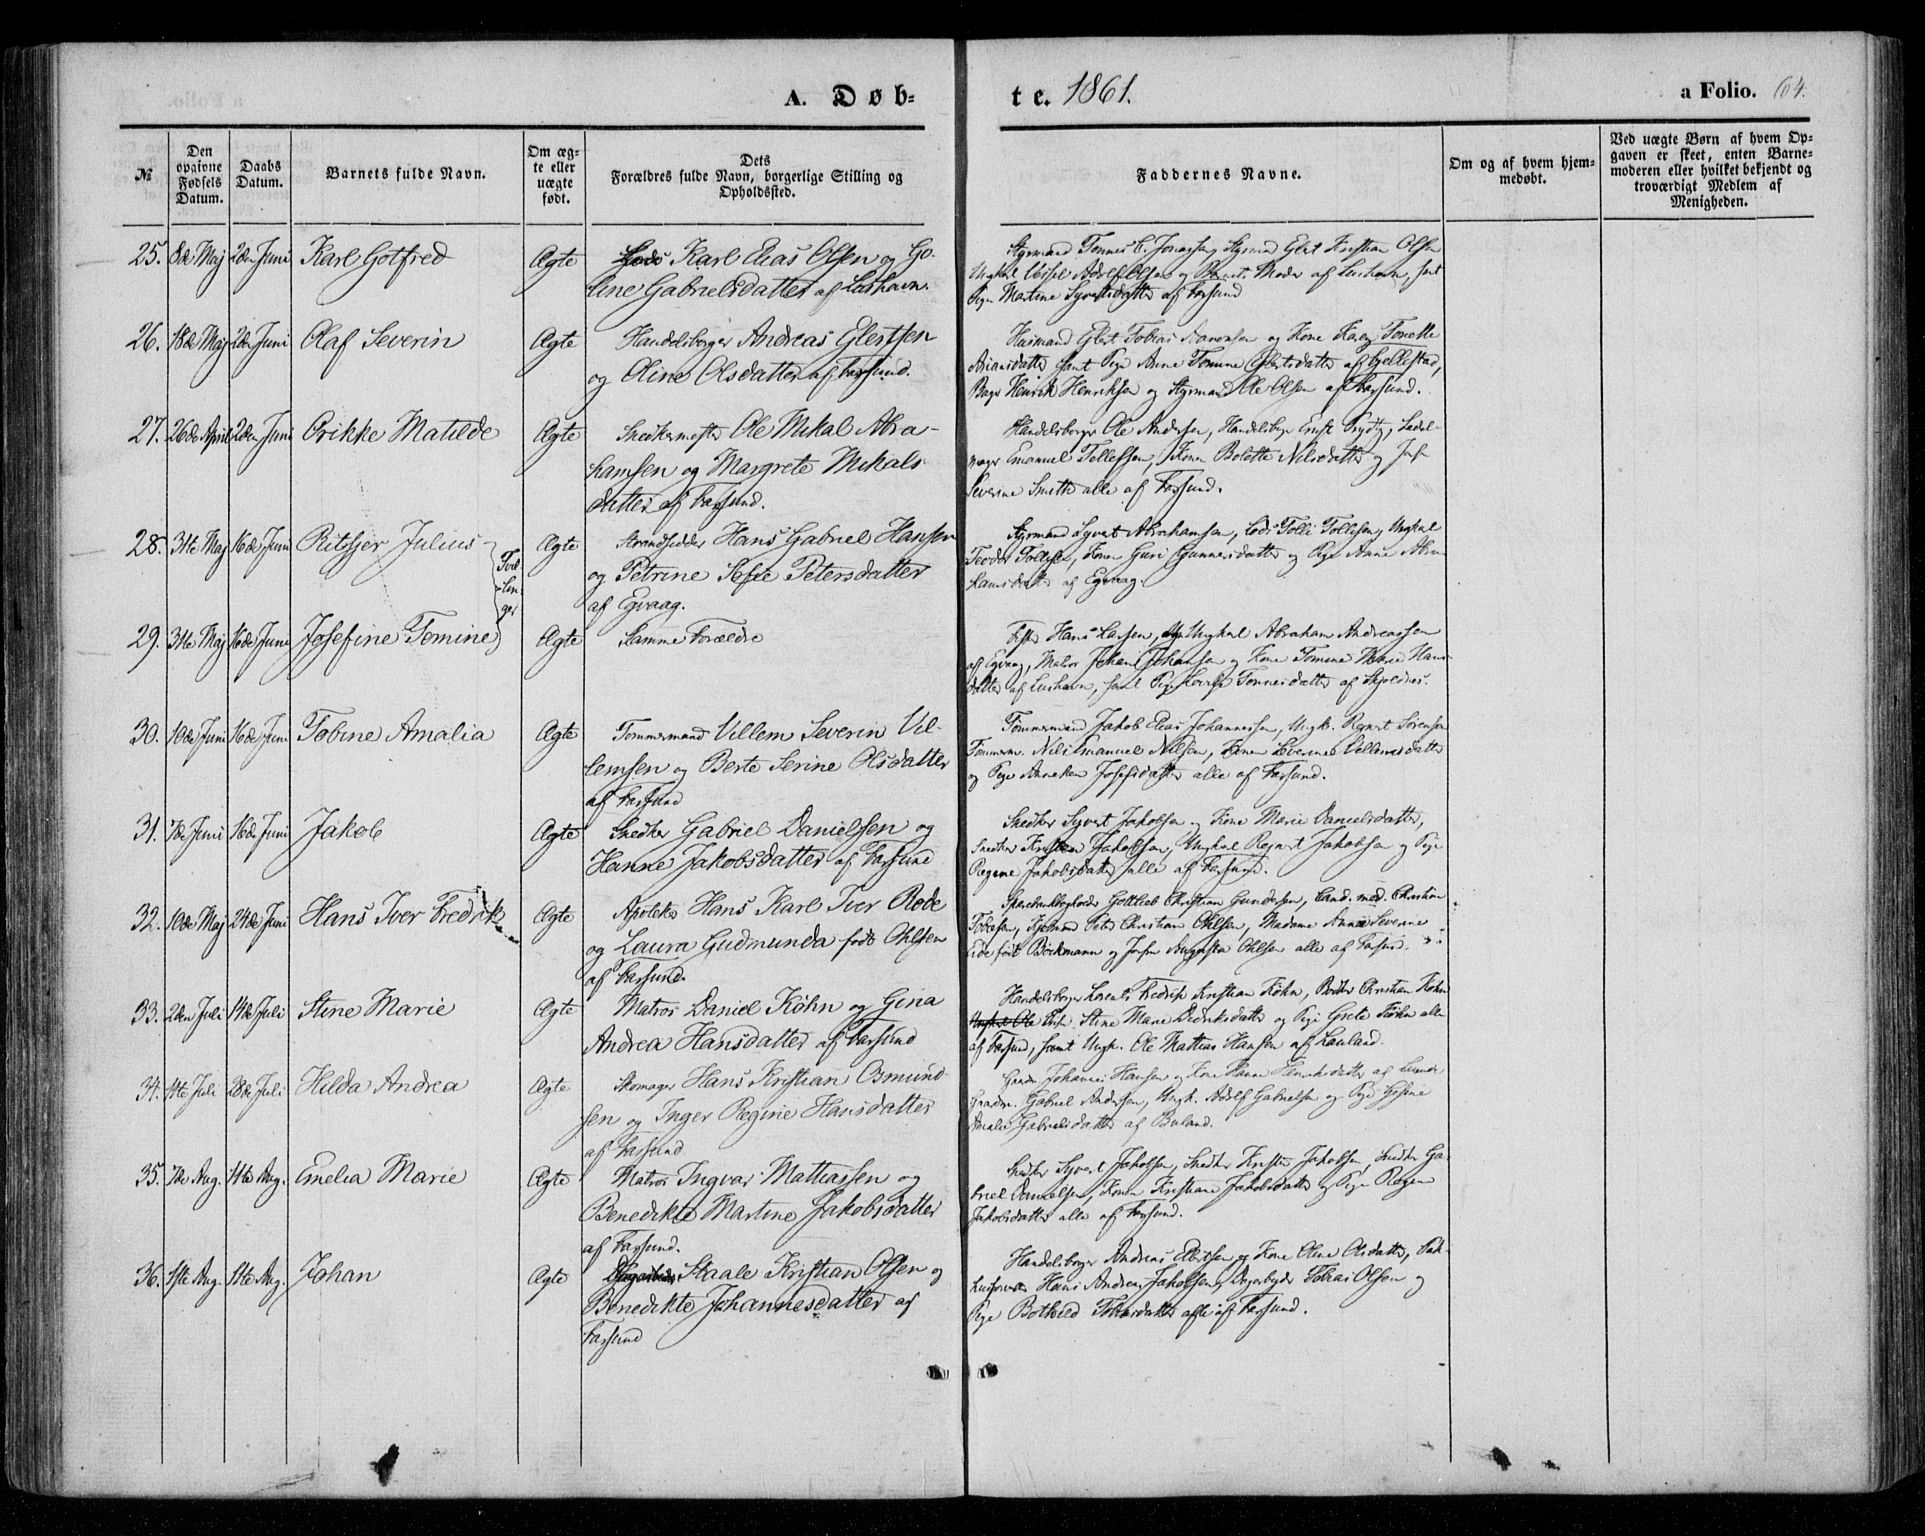 A. Døb-
te. 1861.
a Folio. 64.
№
Den opgivne Fødsels Datum.
Daabs Datum.
Barnets fulde Navn.
Om æg-
te eller
uægte
født.
Dets
Forældres fulde Navn, borgerlige Stilling og
Opholdssted.
Faddernes Navne.
Om og af hvem hjem-
medøbt.
Ved uægte Børn af hvem Op-
gaven er skeet, enten Barne-
moderen eller hvilket bekjendt og
troværdigt Medlem af
Menigheden.
25. 8de Maj 2den Juni Karl Gotfred Ægte Lods Karl Elias Olsen og Go-
line Gabrielsdatter af Loshavn.
Styrmand Tønnes Jonassen, Styrmd Elert Kristian Olsen
Ungkal Adolf Olsen og Barnets Moder af Loshavn, samt
Pige Martine Syvertsdatter af Farsund
26. 18de Maj 2den Juni Olaf Severin Ægte Handelsborger Andreas Elertsen
og Oline Olsdatter af Farsund.
Husmand Elert Tobias og Kone Karen Tonette
Arianisdatter samt Pige Anne Tomine Elertsdatter af Gjellestad,
Bager Henrik Henriksen og Styrmand Ole Olsen af Farsund.
27. 26de April 2den Juni Orikke Matilde Ægte Snedkermester Ole Mikal Abra-
hamsen og Margrete Mikals-
datter af Farsund.
Handelsborger Ole Andersen, Handelsborger Prydtz, Sadel-
mager Emanuel Tellefsen, Kone Bolette Nilsdatter og Jfr
Severine Smith alle af Farsund.
28. 31te Maj 16de Juni Ritsjer Julius Tvil-
lin-
ger
Ægte Strandsidder Hans Gabriel Hansen
og Petrine Sofie Petersdatter
af Egvaag.
Styrmand Syvert Abrahamsen, Lods Tolli Tollisen, Ungkal
Teodor Tollisen, Kone Guri Gunnersdatter og Pige Anne Abra-
hamsdatter af Egvaag.
29. 31te Maj 16de Juni Josefine Tomine Ægte Samme Forældre
Fisker Hans Larsen, Ungkal Abraham Andreassen
af Egvaag, Matros Johan Johansen og Kone Tomine Marie Hans-
datter af Loshavn, samt Pige Lovise Tønnesdatter af Skjoldnes.
30. 10de Juni 16de Juni Tobine Amalia Ægte Tømmermand Villem Severin Vil-
lemsen og Berte Serine Olsdatter
af Farsund
Tømmermand Jakob Elias Johannessen, Ungk. Reinert Sørensen
Tømmerm. Nils Emanuel Nilsen, Kone Severine Villemsdatter
og Pige Anneken Josefsdatter alle af Farsund.
31. 7de Juni 16de Juni Jakob Ægte Snedker Gabriel Danielssen og
Hanne Jakobsdatter af Farsund
Snedker Syvert Jakobsen og Kone Marie Danielsdatter,
Snedker Kristen Jakobsen, Ungkal Reinert Jakobsen og Pige
Regine Jakobsdatter alle af Farsund.
32. 10de Maj 24de Juni Hans Iver Fredrik Ægte Apoteker Hans Karl Iver Rode
og Laura Gudmunda født Ohlsen
af Farsund.
Sparebankbogholder Gottlieb Christian Gundersen, Cand. med. Christian
Tobiesen, Kjøbmand Peter Christian Ohlsen, Madame Anne Severine
født Birkmann og Jomfru Augusta Ohlsen alle af Farsund.
33. 2den Juli 14de Juli Stine Marie Ægte Matros Daniel Køhn og Gina
Andrea Hansdatter af Farsund
Handelsborger Lorents Fredrik Kristian Køhn, Christian Køhn
Ungkal Ole Stine Marie Didriksdatter og Pige Grete Køhn alle
af Farsund, samt Ungk. Ole Mattias Hansen af Lauland.
34. 1te Juli 28de Juli Hilda Andrea Ægte Skomager Hans Kristian Osmund-
sen og Inger Regine Hansdatter
af Farsund
Gaardm. Johannes Hansen og Kone Hanne Henriksdatter af Lunde
Gaardm. Gabriel Andersen, Ungk. Adolf Gabrielsen og Pige Gesine
Amalie Gabrielsdatter af Buland.
35. 7de Aug. 11te Aug. Emelia Marie Ægte Matros Ingvar Mattiassen og
Benedikte Martine Jakobsdatter
af Farsund.
Snedker Syvert Jakobsen, Snedker Kristen Jakobsen, Snedker Ga-
briel Danielsen, Konen Kristiane Jakobsdatter og Pige Regine
Jakobsdatter alle af Farsund.
36. 1ste Aug. 11te Aug. Johan Ægte Dagarbeider Staale Kristian Olsen og
Benedikte Johannesdatter af
Farsund
Handelsborger Andreas Elertsen og Kone Oline Olsdatter, Pak-
Hans Andreas Jakobsen, Dagarbejder Tobias Olsen og
Pige Bothild Tobiasdatter alle af Farsund.